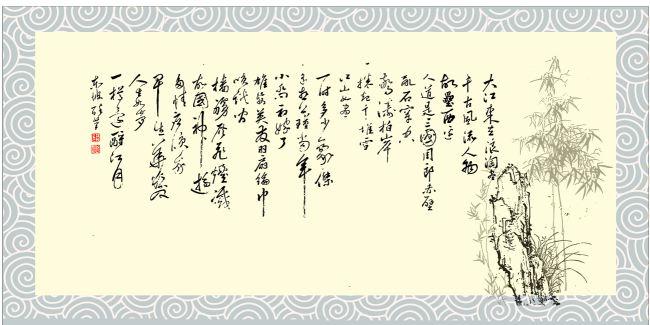 大江東去浪淘尽
千古風流人物
故壘西边
人道是三國周郎赤壁
乱石穿空
驚濤拍岸
捲起千堆雪
江山如畫
一时多少豪傑
遙想公瑾当年
小喬初嫁了
雄姿英发羽扇綸巾
談笑间
檣櫓灰飛煙滅
故國神遊
多情应笑我
早生華髮
人生如夢
一樽還酹江月
东坡